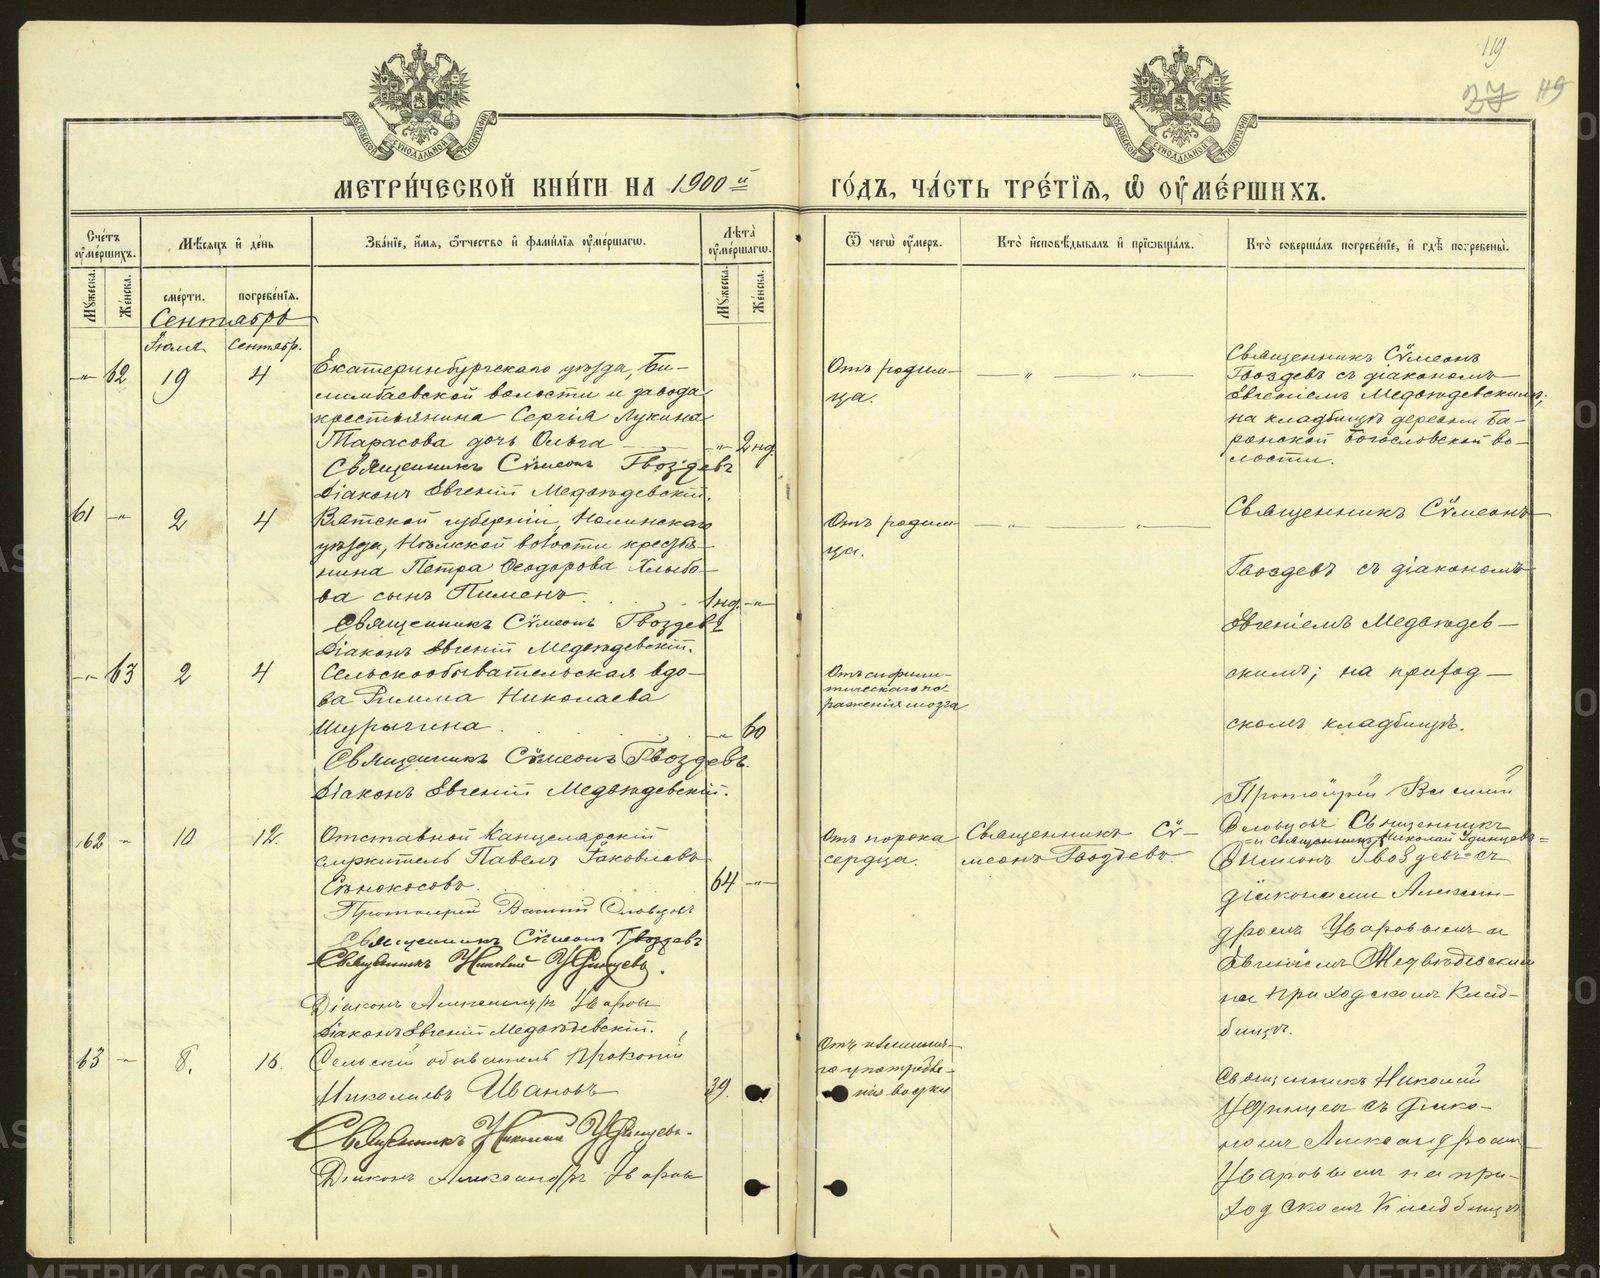 119
27 119
МЕТРИ́ЧЕСКОЙ КНИ́ГИ НА 1900й
ГО́ДЪ, ЧА́СТЬ ТРЕ́ТЇѦ, Ѡ҆ ОУ҆МЕ́РШИХЪ.
Сче́тъ оу҆ме́ршихъ.
Мѣ́сѧцъ и҆ де́нь
Зва́нїе, и҆́мѧ, ѻ҆́тчество и҆ фами́лїѧ оу҆ме́ршагѡ.
Лѣ́та̀ оу҆ме́ршагѡ.
Мꙋ́жеска.
Же́нска.
сме́рти.
погребе́нїѧ.
Мꙋ́жеска.
Же́нска.
Ѿ чегѡ̀ оу҆́меръ.
Кто̀ и҆сповѣ́дывалъ и҆ прїѻбща́лъ.
Кто̀ соверша́лъ погребе́нїе, и҆ гдѣ̀ погребены̀.
Сентябрь
Іюля Сентябр.
-"- 62 19 4
Екатеринбургскаго уѣзда, Би-
лимбаевской волости и завода
крестьянина Сергія Лукина
Тарасова дочь Ольга -"- 2 нд.
Священникъ Сѵмеонъ Гвоздевъ
Діаконъ Евгеній Медвѣдевскій.
Отъ родим-
ца.
Священникъ Сѵмеонъ
Гвоздевъ съ діакономъ
Евгеніемъ Медвѣдевскимъ;
на кладбищѣ деревни Ба-
ранской Богословской во-
лости.
61 -"- 2 4
Вятской губерніи, Нолинскаго
уѣзда, волости крестья-
нина Петра Ѳеодорова Хлыбо-
ва сынъ Пименъ 1 нд. -"-
Священникъ Сѵмеонъ Гвоздевъ
Діаконъ Евгеній Медвѣдевскій.
Отъ родим-
ца.
Священникъ Сѵмеонъ
Гвоздевъ съ діакономъ
Евгеніемъ Медвѣдев-
скимъ; на приход-
скомъ кладбищѣ.
-"- 63 2 4
Сельскообывательская вдо-
ва Римма Николаева
Шурыгина -"- 60
Священникъ Сѵмеонъ Гвоздевъ.
Діаконъ Евгеній Медвѣдевскій.
Отъ сифили-
тическаго по-
раженія мозга
62 - 10 12.
Отставной Канцелярскій
служитель Павелъ Іаковлевъ
Сѣнокосовъ. 64 -"-
Протоіерей Василій Словцовъ
Священникъ Сѵмеонъ Гвоздевъ
Священникъ Николай Удинцевъ.
Діаконъ Александръ Уваровъ
Діаконъ Евгеній Медвѣдевскій.
Отъ порока
сердца.
Священникъ Сѵ-
меонъ Гвоздевъ.
Протоіерей Василій
Словцовъ Священникъ
и священникъ Николай Удинцевъ
Симеонъ Гвоздевъ съ
діаконами Алексан-
дромъ Уваровымъ и
Евгеніемъ Медвѣдевскимъ
на приходскомъ клад-
бищѣ.
63 - 8. 16.
Сельскій обыватель Прокопій
Николаевъ Ивановъ 39.
Священникъ Николай Удинцевъ.
Діаконъ Александръ Уваровъ
Отъ излишня-
го употребле-
нія водки
Священникъ Николай
Удинцевъ съ діако-
номъ Александромъ
Уваровымъ на при-
ходскомъ кладбищѣ
METRIKI.GASO-URAL.RU